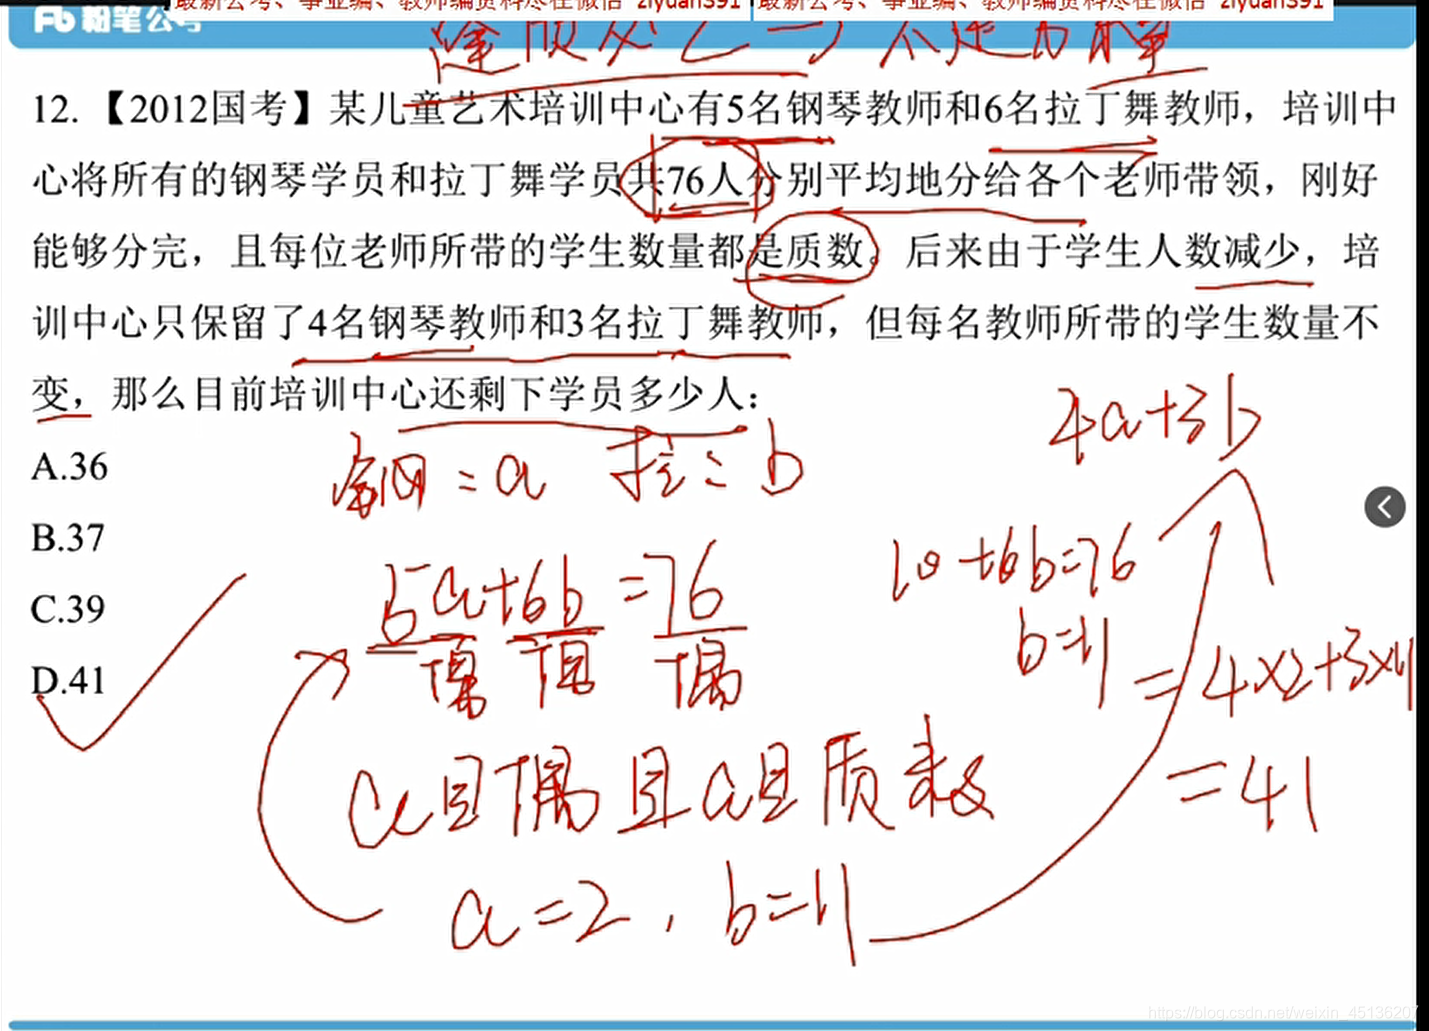 最新公考、事业编、教师编资料尽在微信 ziyuan391 最新公考、事业编、教师编资料尽在微信 ziyuan391
粉笔公考
12.【2012国考】某儿童艺术培训中心有5名钢琴教师和6名拉丁舞教师，培训中
心将所有的钢琴学员和拉丁舞学员共76人分别平均地分给各个老师带领，刚好
能够分完，且每位老师所带的学生数量都是质数。后来由于学生人数减少，培
训中心只保留了4名钢琴教师和3名拉丁舞教师，但每名教师所带的学生数量不
变，那么目前培训中心还剩下学员多少人：
4a+3b
A.36
钢=a 拉=b
B.37
5a+6b=76
10+6b=76
C.39
b=11
偶 偶 偶
D.41
=4×2+3×11
a是偶且a是质数
=41
a=2，b=11
https://blog.csdn.net/weixin_45136207